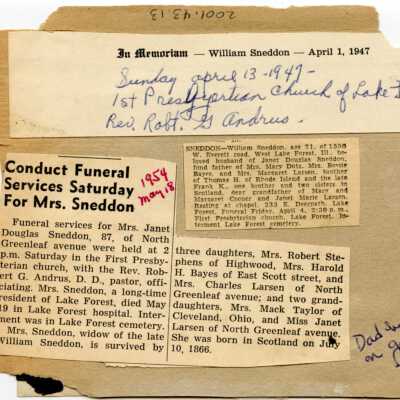 2001.43.13
In Memoriam — William Sneddon — April 1, 1947
Sunday april 13-1947-
1st Presbyortian Church of Lake F
Rev. Robt. G Andrus.
SNEDDON—William Sneddon, age 71, of 1550
W. Everett road, West Lake Forest, Ill., be-
loved husband of Janet Douglas Sneddon,
fond father of Mrs. Mary Dotz, Mrs. Bessie
Bayes, and Mrs. Margaret Larsen, brother
of Thomas H. of Rhode Island and the late
Frank K., one brother and two sisters in
Scotland, dear grandfather of Mary and
Margaret Cooner and Janet Marie Larsen.
Resting at chapel, 233 E. Deerpath, Lake
Forest. Funeral Friday, April 4, 2:30 p. m.,
First Presbyterian church, Lake Forest. In-
terment Lake Forest cemetery.
Conduct Funeral
Services Saturday
For Mrs. Sneddon
1954
May 18
Funeral services for Mrs. Janet
Douglas Sneddon, 87, of North
Greenleaf avenue were held at 2
p.m. Saturday in the First Presby-
terian church, with the Rev. Rob-
ert G. Andrus, D. D., pastor, offi-
ciating. Mrs. Sneddon, a long-time
resident of Lake Forest, died May
19 in Lake Forest hospital. Inter-
ment was in Lake Forest cemetery.
Mrs. Sneddon, widow of the late
William Sneddon, is survived by
three daughters, Mrs. Robert Ste-
phens of Highwood, Mrs. Harold
H. Bayes of East Scott street, and
Mrs. Charles Larsen of North
Greenleaf avenue; and two grand-
daughters, Mrs. Mack Taylor of
Cleveland, Ohio, and Miss Janet
Larsen of North Greenleaf avenue.
She was born in Scotland on July
10, 1866.
Dad
on